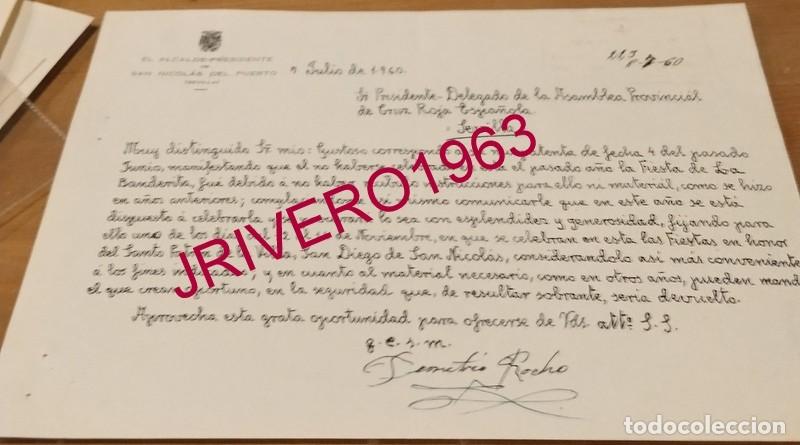 EL ALCALDE-PRESIDENTE
DE
SAN NICOLÁS DEL PUERTO
(SEVILLA)
9 Julio de 1960.
113
7-60
Sr Presidente-Delegado de la Asamblea Provincial
de Cruz Roja Española
Sevilla
Muy distinguido Sr mio: Gustoso correspondo a su atenta de fecha 4 del pasado
Junio, manifestando que el no haberse celebrado el pasado año la Fiesta de La
Banderita, fué debido á no haber instrucciones para ello ni material, como se hizo
en años anteriores; asi mismo comunicarle que en este año se está
dispuesto á celebrarla y lo sea con esplendidez y generosidad, fijando para
ello uno de los dias 12 de Noviembre, en que se celebran en esta las Fiestas en honor
del Santo Patron de la Villa, San Diego de San Nicolás, considerandolo asi más conveniente
á los fines indicados, y en cuanto al material necesario, como en otros años, pueden mand
el que crean oportuno, en la seguridad que, de resultar sobrante, seria devuelto.
Aprovecha esta grata oportunidad para ofrecerse de Vds. attº S.S.
q.e.s.m.
Demetrio Rocho
JRIVERO1963
todocoleccion